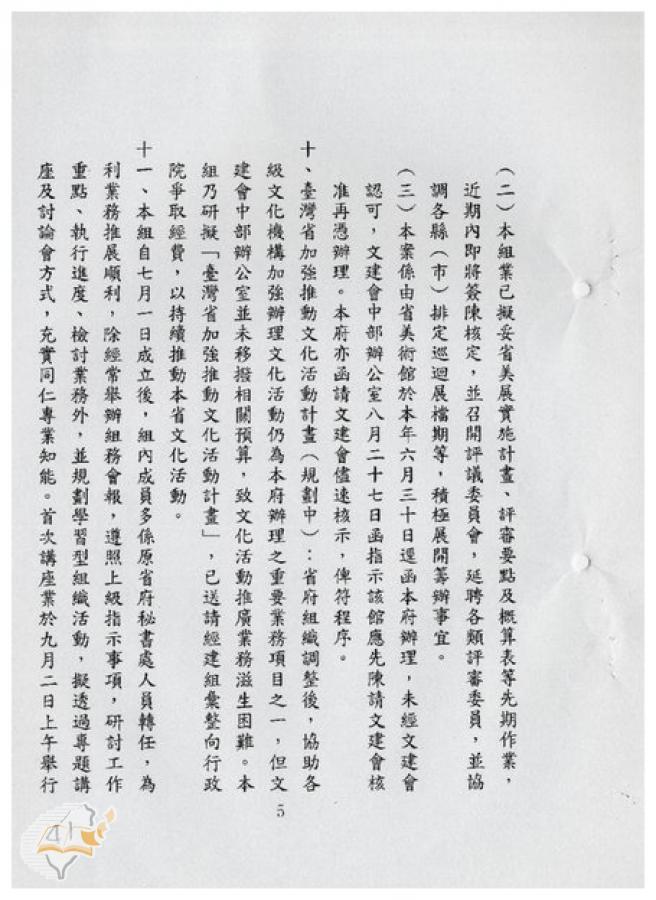 （二）本組業已擬妥省美展實施計畫、評審要點及概算表等先期作業，
近期內即將簽陳核定，並召開評議委員會，延聘各類評審委員，並協
調各縣（市）排定巡迴展檔期等，積極展開籌辦事宜。
（三）本案係由省美術館於本年六月三十日逕函本府辦理，未經文建會
認可，文建會中部辦公室八月二十七日函指示該館應先陳請文建會核
准再憑辦理。本府亦函請文建會儘速核示，俾符程序。
十、臺灣省加強推動文化活動計畫（規劃中）：省府組織調整後，協助各
級文化機構加強辦理文化活動仍為本府辦理之重要業務項目之一，但文
建會中部辦公室並未移撥相關預算，致文化活動推廣業務滋生困難。本
組乃研擬「臺灣省加強推動文化活動計畫」，已送請經建組彙整向行政
院爭取經費，以持續推動本省文化活動。
十一、本組自七月一日成立後，組內成員多係原省府秘書處人員轉任，為
利業務推展順利，除經常舉辦組務會報，遵照上級指示事項，研討工作
重點、執行進度、檢討業務外，並規劃學習型組織活動，擬透過專題講
座及討論會方式，充實同仁專業知能。首次講座業於九月二日上午舉行
5